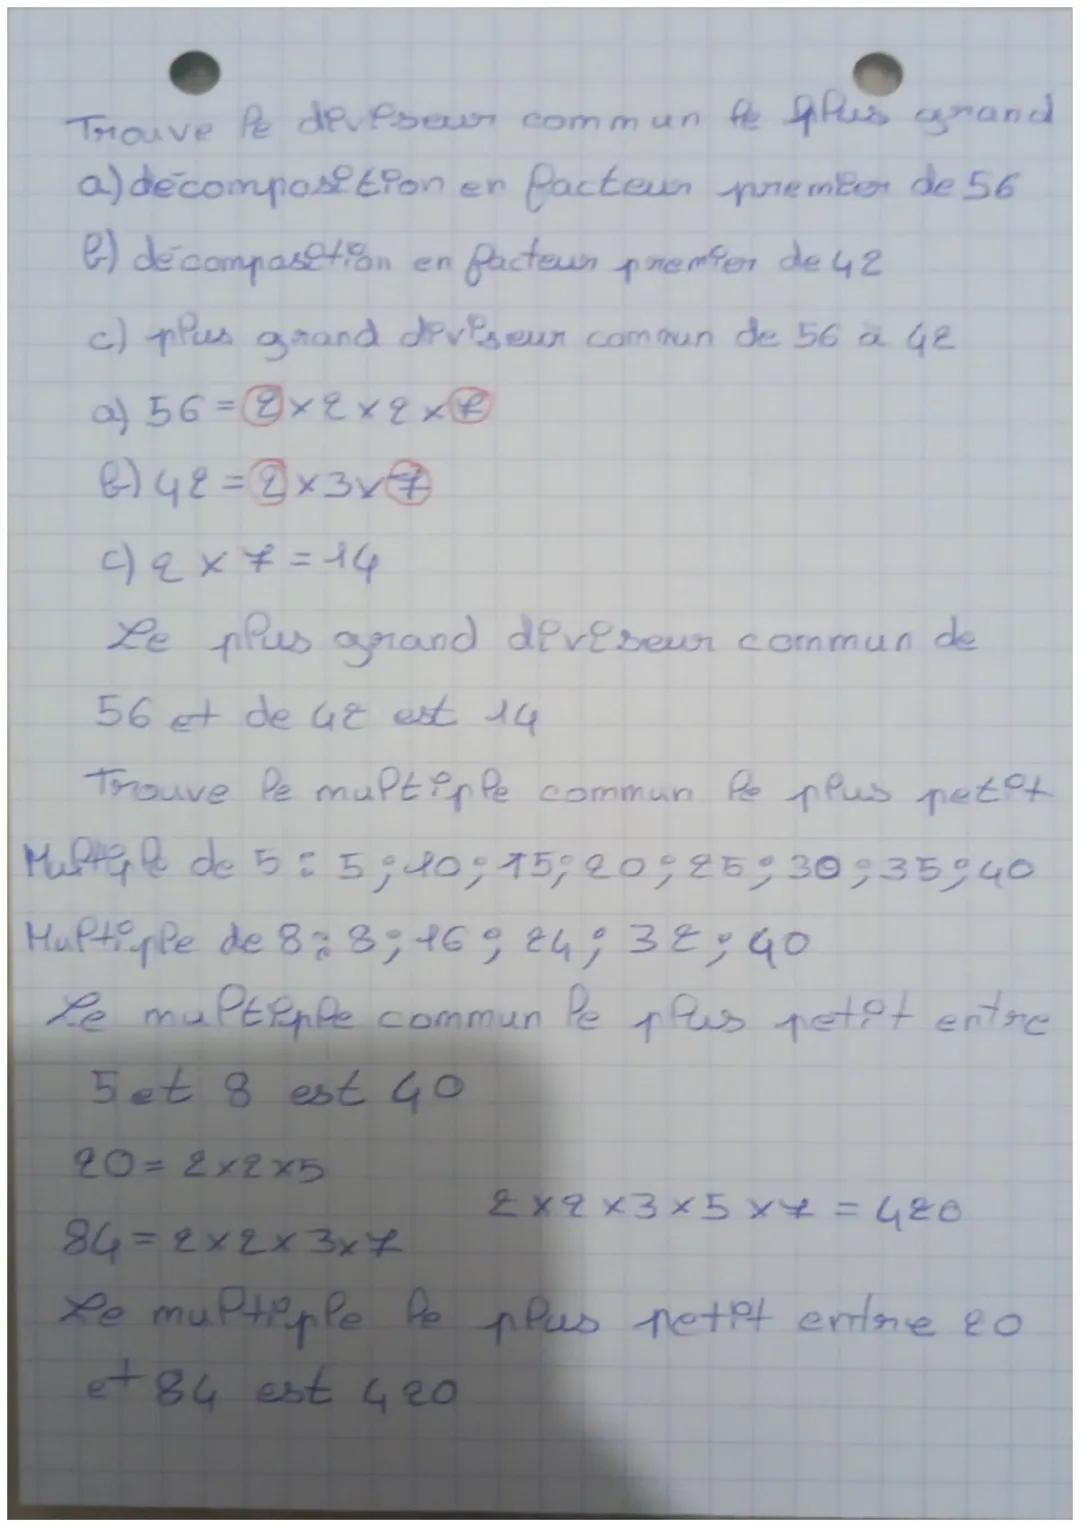 Trouve le diviseur commun le plus grand
a) décomposition en facteur premier de 56
b) décomposition en facteur premier de 42
c) plus grand diviseur commun de 56 à 42
a) 56 = 2 × 2 × 2 × 7
b) 42 = 2 × 3 × 7
c) 2 × 7 = 14
Le plus grand diviseur commun de
56 et de 42 est 14
Trouve le multiple commun le plus petit
Multiple de 5 : 5 ; 10 ; 15 ; 20 ; 25 ; 30 ; 35 ; 40
Multiple de 8 : 8 ; 16 ; 24 ; 32 ; 40
Le multiple commun le plus petit entre
5 et 8 est 40
20 = 2 × 2 × 5
2 × 2 × 3 × 5 × 7 = 420
84 = 2 × 2 × 3 × 7
Le multiple le plus petit entre 20
et 84 est 420